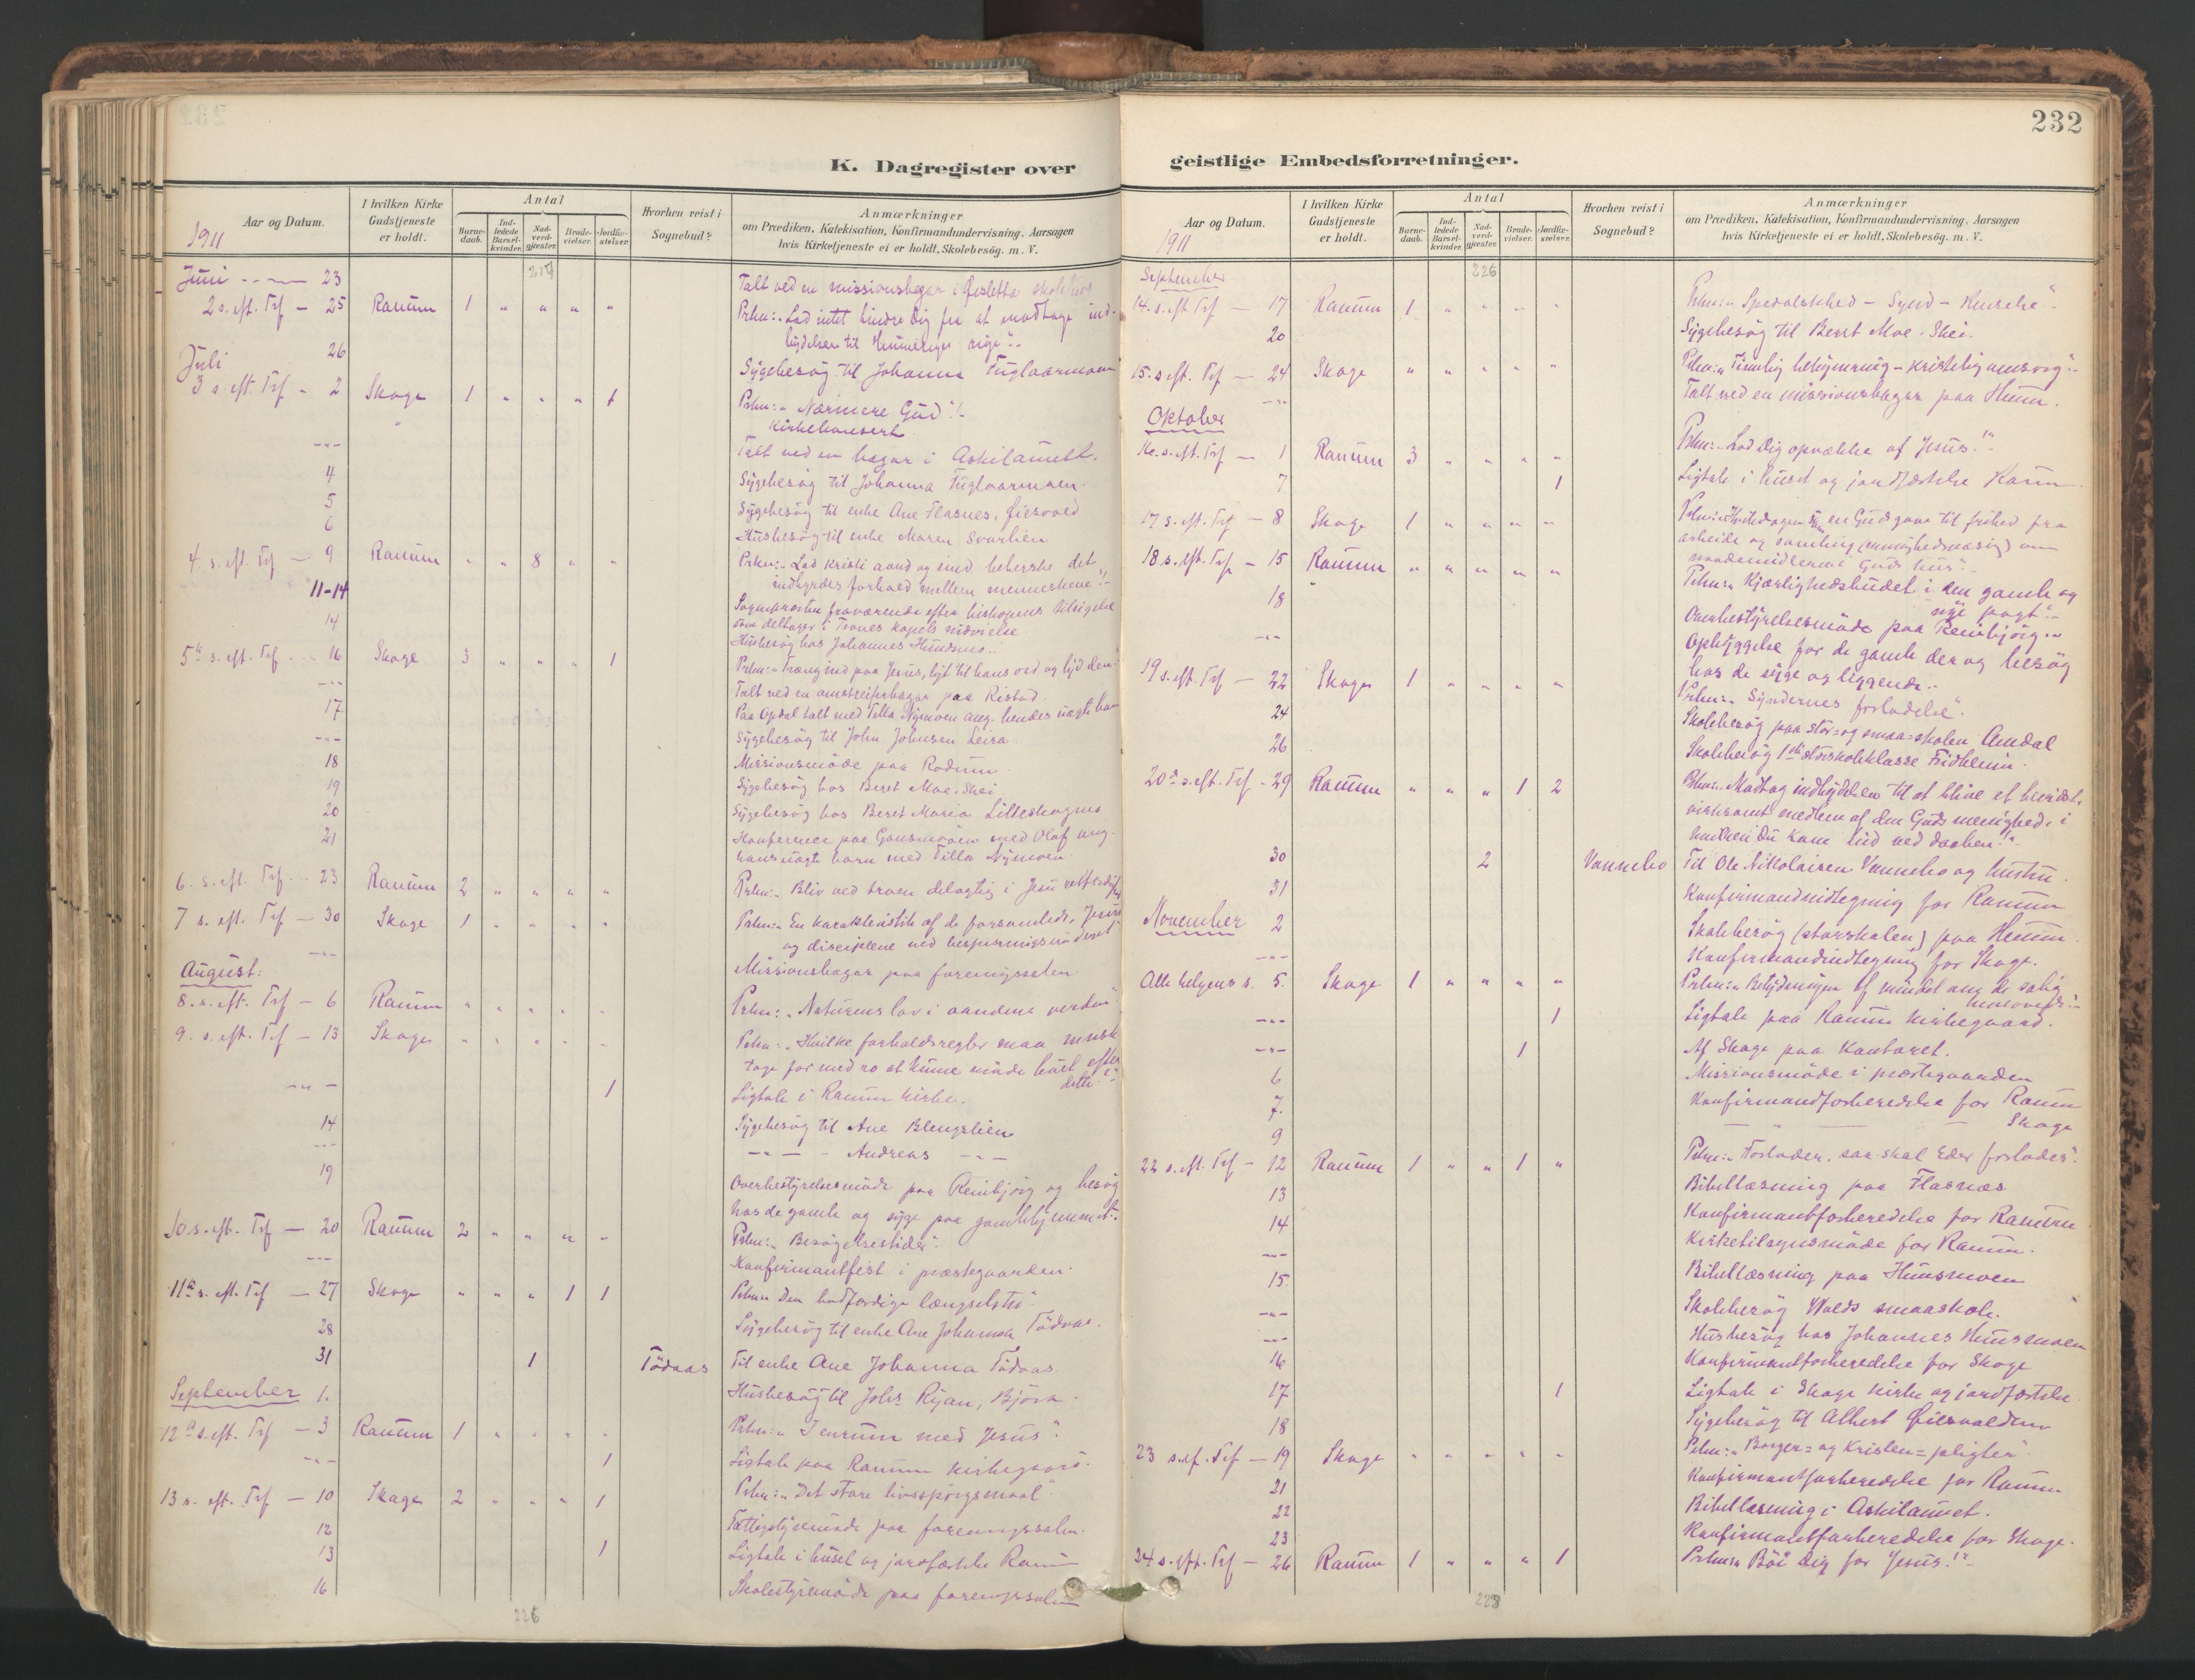 232
K. Dagregister over geistlige Embedsforretninger.
Aar og Datum. | I hvilken Kirke Gudstjeneste er holdt. | Antal | Barnedaab. | Indledede Barselkvinder. | Nadverdgjæster. | Brudevielser. | Jordfæstelser. | Hvorhen reist i Sognebud? | Anmærkninger om Prædiken, Katekisation, Konfirmandundervisning, Aarsagen hvis Kirketjeneste ei er holdt, Skolebesög. m. V.
1911
Juni 23 Talt ved en missionsbazar i
2 s. eft. Trf - 25 Ranum 1 " " " " Prkn: "Lad intet hindre Dig fra at modtage ind-
bydelsen til Himmeriges rige".
26 Sygebesög til Johanna Fuglaarmoen
Juli
3 s. eft. Trf - 2 Skage 1 " " " 1 Prkn: "Nærmere Gud"!
" Kirkekonsert
-"- Talt ved en bazar i Askilamett.
4 Sygebesög til Johanna Fuglaarmoen.
5 Sygebesög til enke Ane Flasnes, Öiesvold
6 Husbesög til enke Maren Svarlien
4. s. eft. Trf - 9 Ranum " " 8 " " Prkn: "Lad Kristi aand og sind beherske det
indbyrdes forhold mellem menneskene"!
11-14 Sogneprosten fraværende efter biskopens tilsigelse
som deltager i Trones kapels indvielse.
14 Husbesög hos Johannes Hunsmo.
5te s. eft. Trf - 16 Skage 3 " " " 1 Prkn: "Træng ind paa Jesus, lyt til hans ord og lyd dem"
-"- Talt ved en omstreiferbazar paa Ristad.
17 Paa Opdal talt med Tilla Nymoen ang. hendes uægte barn
-"- Sygebesög til John Johnsen Leira.
18 Missionsmöde paa Rodum.
19 Sygebesög hos Beret Moe, Skei
20 Sygebesög hos Beret Maria Lilleskogmo
21 Konference paa Gansmoen med Olaf ang.
hans uægte barn med Tilla Nymoen.
6. s. eft. Trf - 23 Ranum 2 " " " " Prkn: "Bliv ved troen delagtig i Jesu retfærdighed
7 s. eft. Trf - 30 Skage 1 " " " " Prkn: "En karakteristik af de forsamlede, Jesus
og disciplene ved bespisningsunderet"
-"- Missionsbazar paa foreningssalen.
August:
8. s. eft. Trf - 6 Ranum " " " " " Prkn: "Naturens lov i aandens verden"
9. s. eft. Trf - 13 Skage " " " " " Prkn: "Hvilke forholdsregler maa
tage for med ro at kunne möde livet efter
dette"
-"- 1 Ligtale i Ranum kirke.
14 Sygebesög til Ane Blengslien
-"- -"- - Andreas -"-
19 Overbestyrelsesmöde paa Reinbjörg og besög
hos de gamle og syge paa gamlehjemmet.
10. s. eft. Trf - 20 Ranum 2 " " " " Prkn: "Besögelsestider".
-"- Konfirmantfest i præstegaarden.
11te s. eft. Trf - 27 Skage " " " 1 1 Prkn: "Den bodfærdige længselstro".
28 Sygebesög til enke Ane Johanna Tödvas.
31 1 Tödvaas Til enke Ane Johanna Tödvaas
September 1. Husbesög til Johs Ryan, Björa.
12te s. eft. Trf - 3 Ranum 1 " " " " Prkn: "I enrum med Jesus".
-"- 1 Ligtale paa Ranum kirkegaard.
13 s. eft. Trf - 10 Skage 2 " " " 1 Prkn: "Det store livsspörgsmaal".
12 Fattigstyremöde paa foreningssalen.
13 1 Ligtale i huset og jordfæstelse Ranum
16 Skolestyremöde paa foreningssalen
226
1911
226
September
14. s. eft. Trf - 17 Ranum 1 " " " " Prkn: "Spedalskhed - Synd - Renselse".
20 Sygebesög til Beret Moe, Skei.
15. s. eft. Trf - 24 Skage " " " " " Prkn: "Timelig bekymring - kristelig omsorg".
-"- Talt ved en missionsbazar paa Hunn.
Oktober
16. s. eft. Trf - 1 Ranum 3 " " " " Prkn: "Lad Dig opvække af Jesus!"
7 1 Ligtale i huset og jordfæstelse Ranum
17 s. eft. Trf - 8 Skage 1 " " " " Prkn: "Hviledagen en Guds gave til frihed fra
arbeide og samling (menighedsvis) om
naademidlerne i Guds hus".
18 s. eft. Trf - 15 Ranum " " " " " Prkn: "Kjærlighedsbudet i den gamle og
nye pagt".
18 Overbestyrelsesmöde paa Reinbjörg.
-"- Opbyggelse for de gamle der og besög
hos de syge og liggende.
19 s. eft. Trf - 22 Skage 1 " " " " Prkn: "Syndernes forladelse".
24 Skolebesög paa stor- og smaa-skolen Amdal
26 Skolebesög 1ste storskoleklasse Fridheim.
20de s. eft. Trf - 29 Ranum " " " 1 2 Prkn: "Modtag indbydelsen til at blive et bevidst,
virksomt medlem af den Guds menighed, i
hvilken Du kom ind ved daaben!"
30 2 Vannebo Til Ole Nikolaisen Vannebo og hustru.
31 Konfirmandindtegning for Ranum
November 2 Skolebesög (storskolen) paa Hunn.
-"- Konfirmandindtegning for Skage.
Alle helgens s. 5. Skage 1 " " " " Prkn: "Betydningen af mindet om de salig
hensovede".
-"- 1 Ligtale paa Ranum kirkegaard.
-"- 1 Af Skage paa Kontoret.
6 Missionsmöde i præstegaarden
7. Konfirmandforberedelse for Ranum
9 - " - - Skage
22 s. eft. Trf - 12 Ranum 1 " " 1 " Prkn: "Forlader, saa skal Eder forlades".
13 Bibellæsning paa Flasnæs.
14 Konfirmantforberedelse for Ranum
-"- Kirketilsynsmöde for Ranum.
15. Bibellæsning paa Hunsmoen
-"- Skolebesög Volds smaaskole.
-"- Husbesög hos Johannes Hunsmoen
16 Konfirmantforberedelse for Skage
17 1 Ligtale i Skage kirke og jordfæstelse.
18 Sygebesög til Albert Öiesvolden
23 s. ef. Trf - 19 Skage " " " " " Prkn: "Borger= og Kristen=pligter".
21 Konfirmantforberedelse for Ranum
22 Bibellæsning i Askilamet.
23 Konfirmantforberedelse for Skage.
24 s. eft. Trf - 26 Ranum 1 " " " 1 Prkn: "Böi Dig for Jesus!"
228